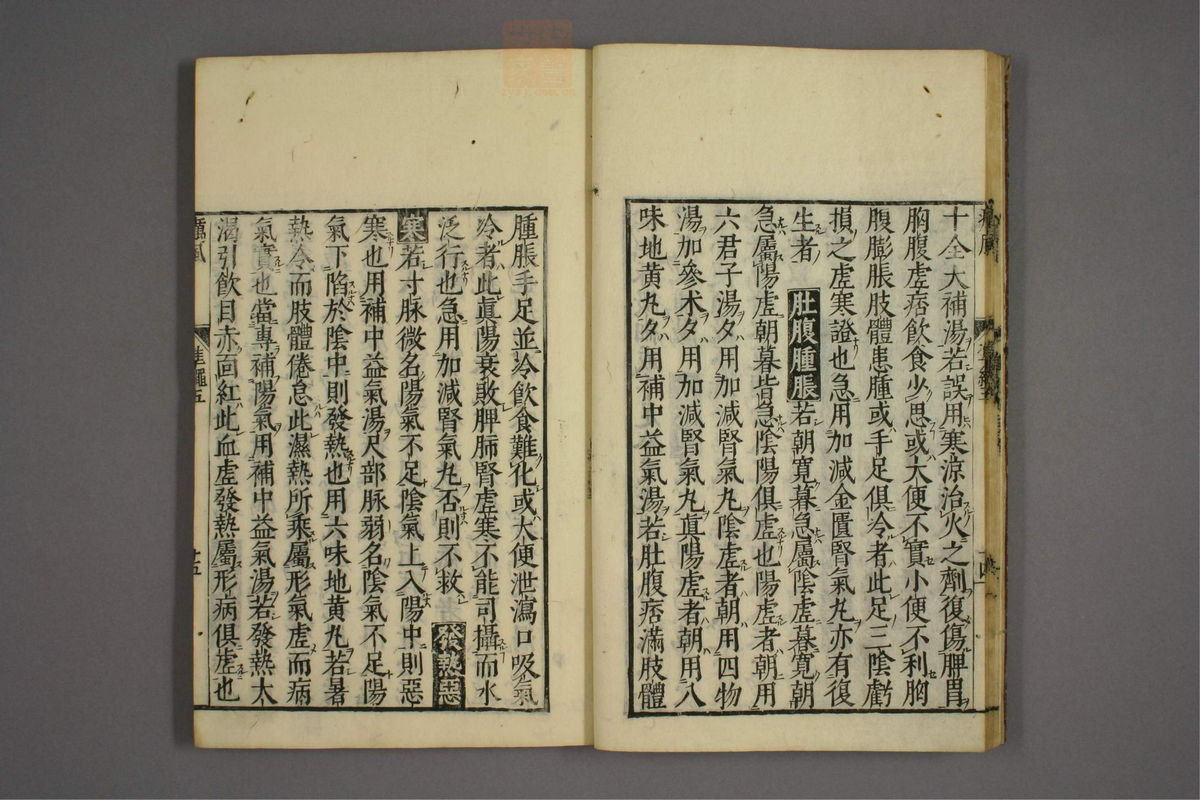 十全大補湯若誤用寒涼治火之劑復傷脾胃
胸腹虛痞飲食少思或大便不實小便不利胸
腹膨脹肢體患腫或手足俱冷者此足三陰虧
損之虛寒證也急用加減金匱腎氣丸亦有復
生者 肚腹腫脹若朝寬暮急屬陰虛暮寬朝
急屬陽虛朝暮皆急陰陽俱虛也陽虛者朝用
六君子湯夕用加減腎氣丸陰虛者朝用四物
湯加參朮夕用加減腎氣丸真陽虛者朝用八
味地黄丸夕用補中益氣湯若肚腹痞滿肢體
腫脹手足並冷飲食難化或大便泄瀉口吸氣
冷者此眞陽衰敗脾肺腎虛寒不能司攝而水
泛行也急用加減腎氣丸否則不救 發熱惡
寒若寸脉微名陽氣不足陰氣上入陽中則惡
寒也用補中益氣湯尺部脉弱名陰氣不足陽
氣下陷於陰中則發熱也用六味地黄丸若暑
熱令而肢體倦怠此濕熱所乘屬形氣虛而病
氣實也當專補陽氣用補中益氣湯若發熱大
渴引飲目赤面紅此血虛發熱屬形病俱虛也
癘風
準繩五
十五